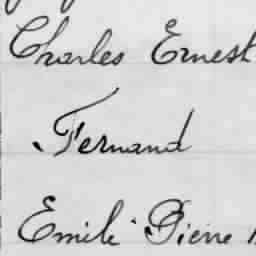 Charles Ernest
Fernand
Emile Pierre